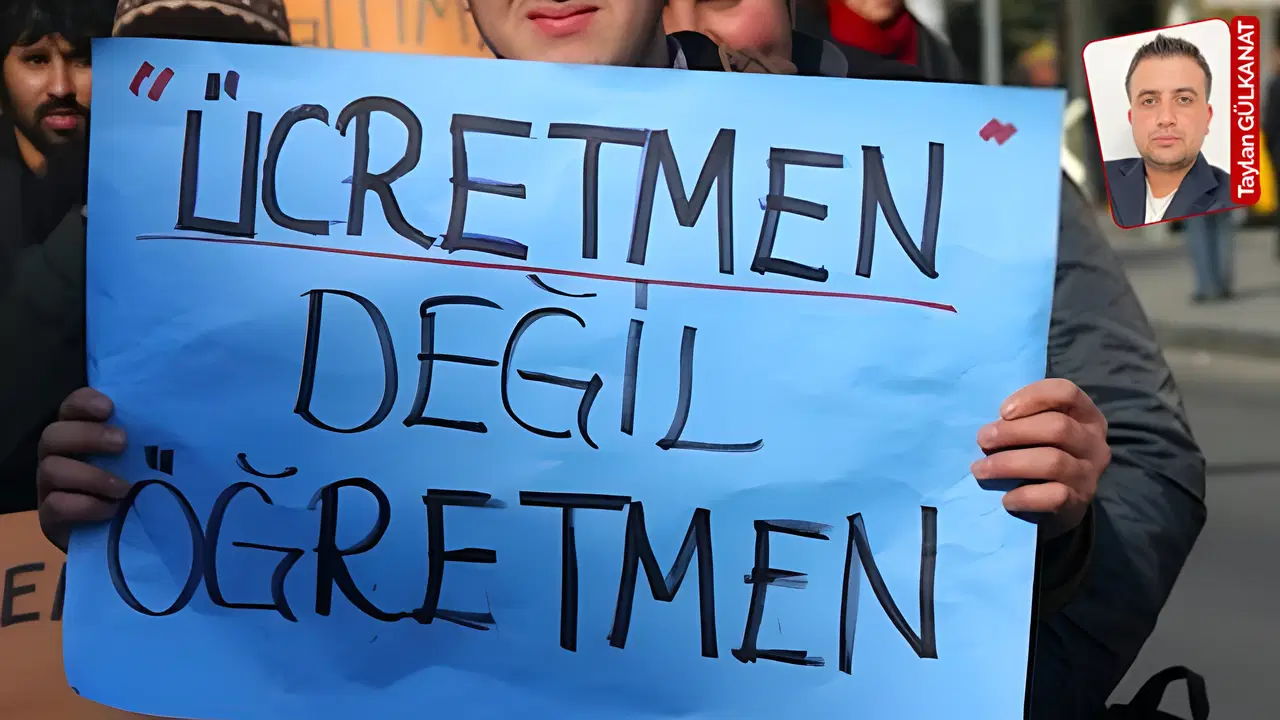 "ÜCRETMEN"
DEĞİL
ÖĞRETMEN
Taylan GÜLKANAT